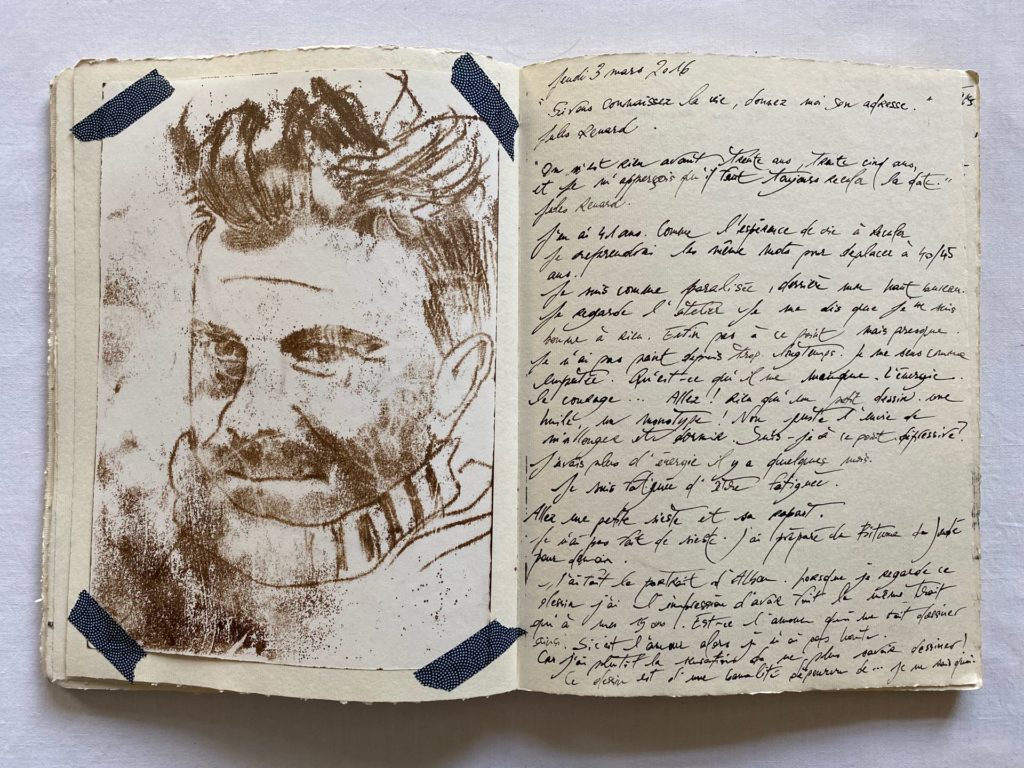 Jeudi 3 mars 2016
"Si vous connaissez la vie, donnez moi son adresse."
Jules Renard.
"On n'est rien avant trente ans, trente cinq ans,
et je m'apperçois qu'il faut toujours reculer la date."
Jules Renard.
J'en ai 41 ans. Comme l'espérence de vie à reculer
Je reprendrai les même mots pour deplacer à 40/45
ans.
Je suis comme paralisée, derrière mon haut bureau.
Je regarde l'atelier je me dis que je ne suis
bonne à Rien. Enfin pas à ce point mais presque.
Je n'ai pas peint depuis trop longtemps. Je me sens comme
empatée. Qu'est-ce qu'il me manque. L'énergie.
Le courage... Allez! Rien qu'un petit dessin. une
huile. un monotype! Non juste l'envie de
m'allonger et de dormir. Suis-je à ce point dépressive?
J'avais plus d'énergie il y a quelques mois.
Je suis fatiguée d'être fatiguée.
Allez une petite sieste et on repart.
Je n'ai pas fait de sieste. J'ai préparé du Bitume de Judée
pour demain.
J'ai fait le portrait d'Alban. lorsque je regarde ce
dessin j'ai l'impression d'avoir fait le même trait
qu'à mes ans! Est-ce l'amour qui me fait dessiner
ainsi. Si c'est l'amour alors je n'ai pas honte.
Car j'ai plutôt la sensation de ne plus savoir dessiner!
Ce dessin est d'une banalité dépourvu de... je ne sais quoi.